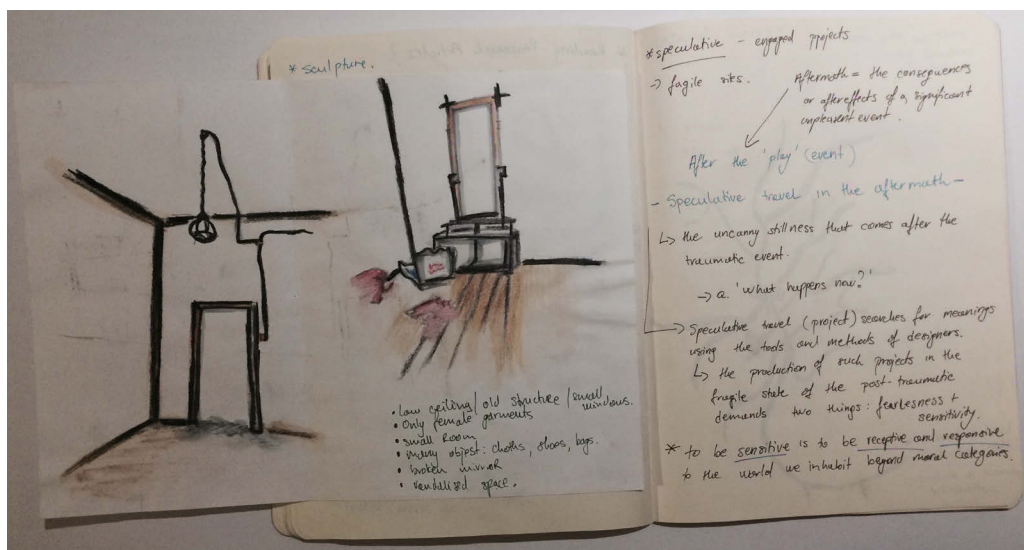 * sculpture.
• Low ceiling / old structure / small windows.
• Only female garments
• small Room
• many objest: cloths, shoes, bags.
• broken mirror
• vandalised space.
* speculative – engaged projects
→ fragile sites.
Aftermath = the consequences
or aftereffects of a significant
unpleasent event.
After the 'play' (event)
- Speculative travel in the aftermath -
↳ the uncanny stillness that comes after the
traumatic event.
→ a. 'What happens now?'
→ Speculative travel (project) searches for meanings
using the tools and methods of designers.
↳ the production of such projects in the
fragile state of the post-traumatic
demands two things: fearlessness +
sensitivity.
* to be sensitive is to be receptive and responsive
to the world we inhabit beyond moral categories.